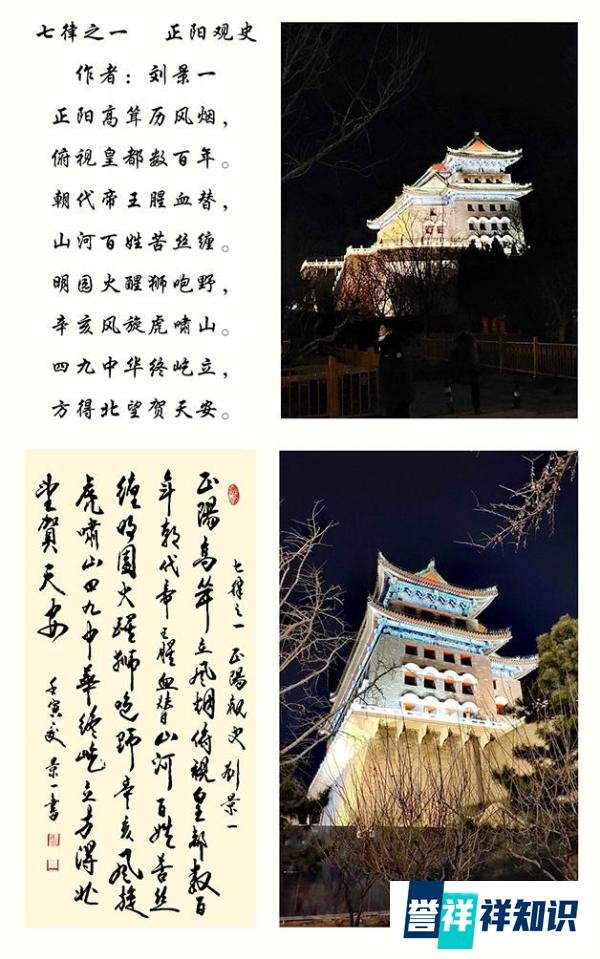 七律之一 正阳观史
作者：刘景一
正阳高耸历风烟，
俯视皇都数百年。
朝代帝王腥血替，
山河百姓苦丝缠。
明园火醒狮咆野，
辛亥风旋虎啸山。
四九中华终屹立，
方得北望贺天安。
七律之一 正陽觀史 刘景一
正陽高耸立风烟俯視皇都数百
年朝代帝王腥血替山河百姓苦丝
缠明園火醒狮咆野辛亥风旋
虎啸山四九中華终屹立方得北
望賀天安
壬寅 景一书
誉祥祥知识